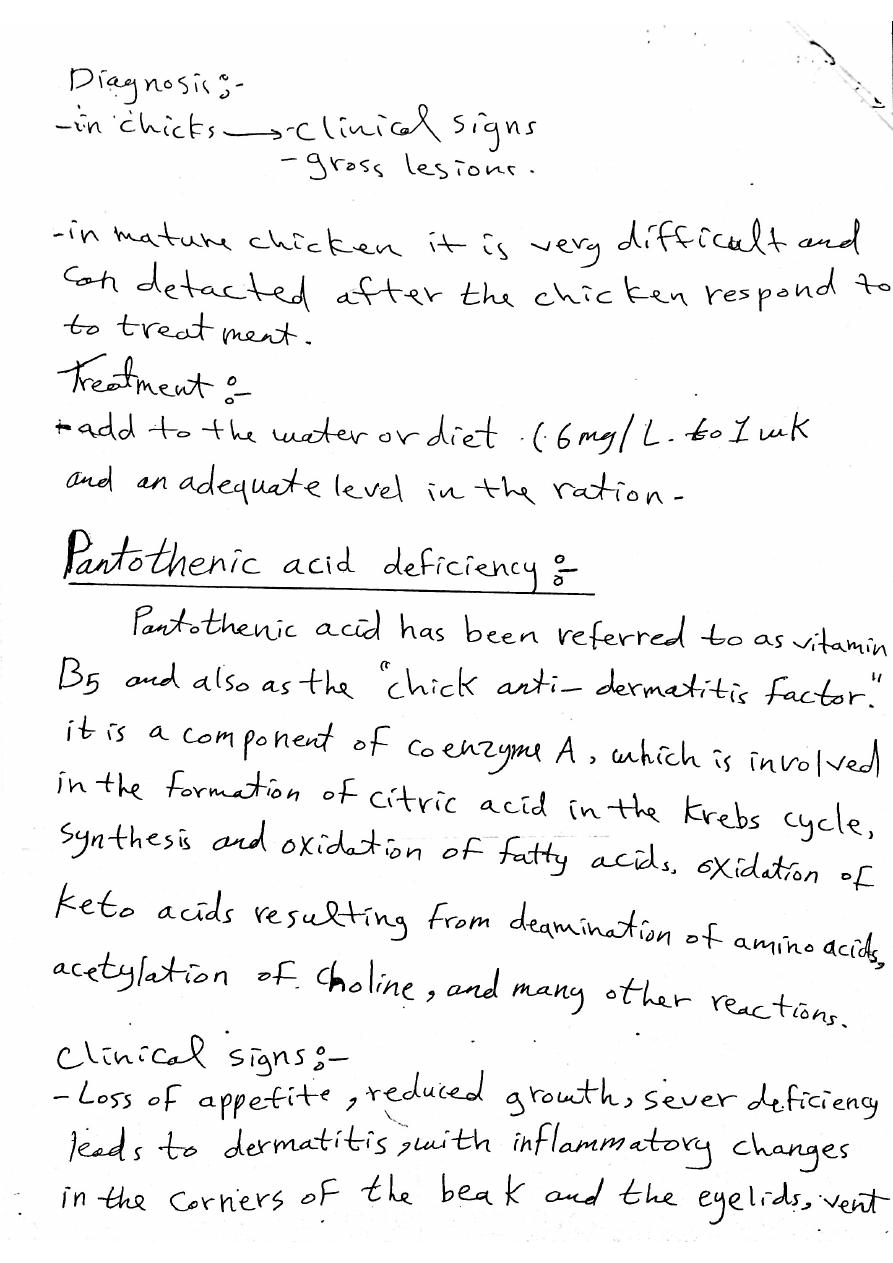 Diagnosis:-
-in chicks → -clinical signs
-gross lesions.
-in mature chicken it is very difficult and
can detacted after the chicken respond to
to treatment.
Treatment :-
-add to the water or diet (6mg/L. to 1 wk
and an adequate level in the ration-
Pantothenic acid deficiency :-
Pantothenic acid has been referred to as vitamin
B5 and also as the "chick anti-dermatitis factor."
it is a component of coenzyme A, which is involved
in the formation of citric acid in the Krebs cycle,
synthesis and oxidation of fatty acids, oxidation of
keto acids resulting from deamination of amino acids,
acetylation of choline, and many other reactions.
Clinical signs:-
-Loss of appetite, reduced growth, sever deficiency
leads to dermatitis, with inflammatory changes
in the corners of the beak and the eyelids, vent